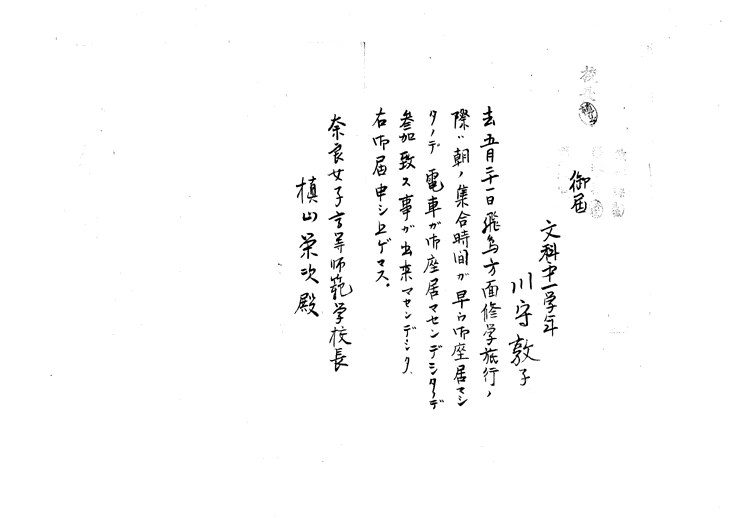 校長
御届
文科中一学年
川守敦子
去五月三十一日飛鳥方面修学旅行ノ
際ハ朝ノ集合時間ガ早ウ御座居マシ
タノデ電車ガ御座居マセンデシタノデ
参加致ス事ガ出来マセンデシタ。
右御届申シ上ゲマス。
奈良女子高等師範学校長
槙山栄次殿